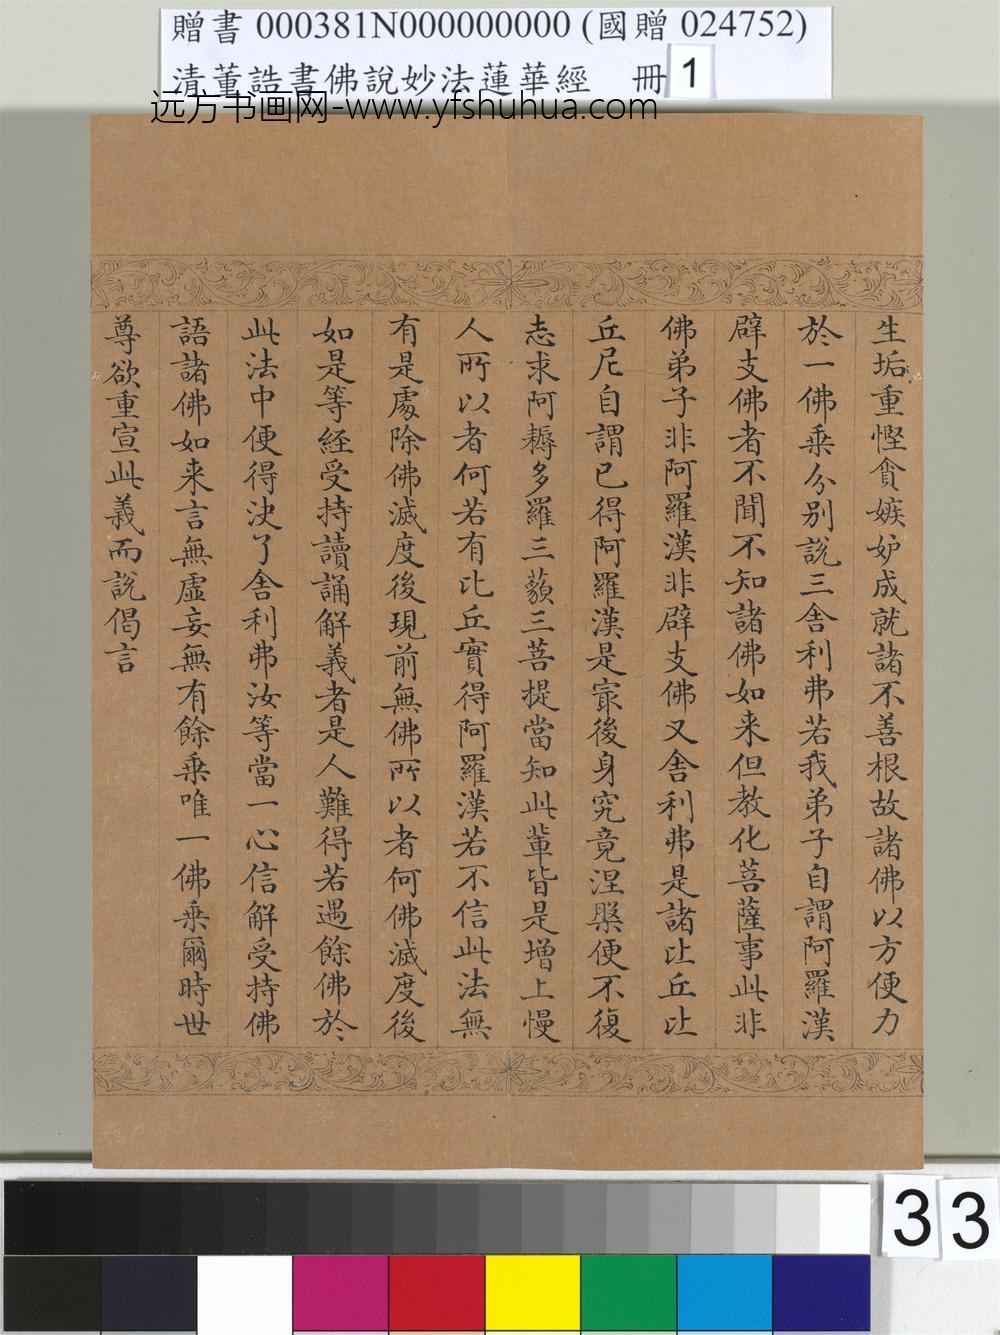 贈書 000381N000000000 (國贈 024752)
清董誥書佛說妙法蓮華經 冊 1
远方书画网-www.yfshuhua.com
生垢重慳貪嫉妒成就諸不善根故諸佛以方便力
於一佛乗分別說三舍利弗若我弟子自謂阿羅漢
辟支佛者不聞不知諸佛如来但教化菩薩事此非
佛弟子非阿羅漢非辟支佛又舍利弗是諸比丘比
丘尼自謂已得阿羅漢是㝡後身究竟涅槃便不復
志求阿耨多羅三藐三菩提當知此輩皆是增上慢
人所以者何若有比丘實得阿羅漢若不信此法無
有是處除佛滅度後現前無佛所以者何佛滅度後
如是等経受持讀誦解義者是人難得若遇餘佛於
此法中便得決了舍利弗汝等當一心信解受持佛
語諸佛如来言無虛妄無有餘乗唯一佛乗爾時世
尊欲重宣此義而說偈言
33